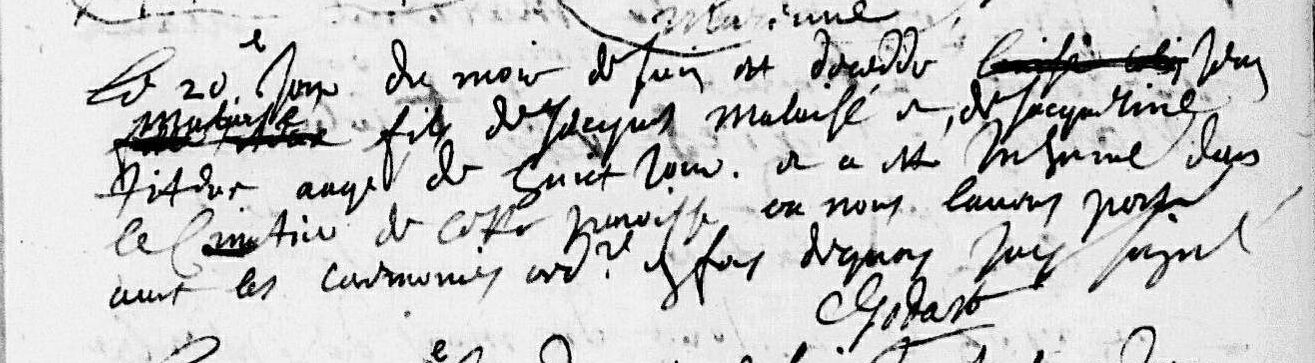 Le 20e Jour du mois de Juin est decedde Jean
malaisé fils de Jacques malaisé et de Jacqueline
aagé de huict Jours. et a esté Inhumé dans
le Cimtire de cette paroisse ou nous lavons porté
avec les ceremonies ordre en foy dequoy Jay signé
CGodart